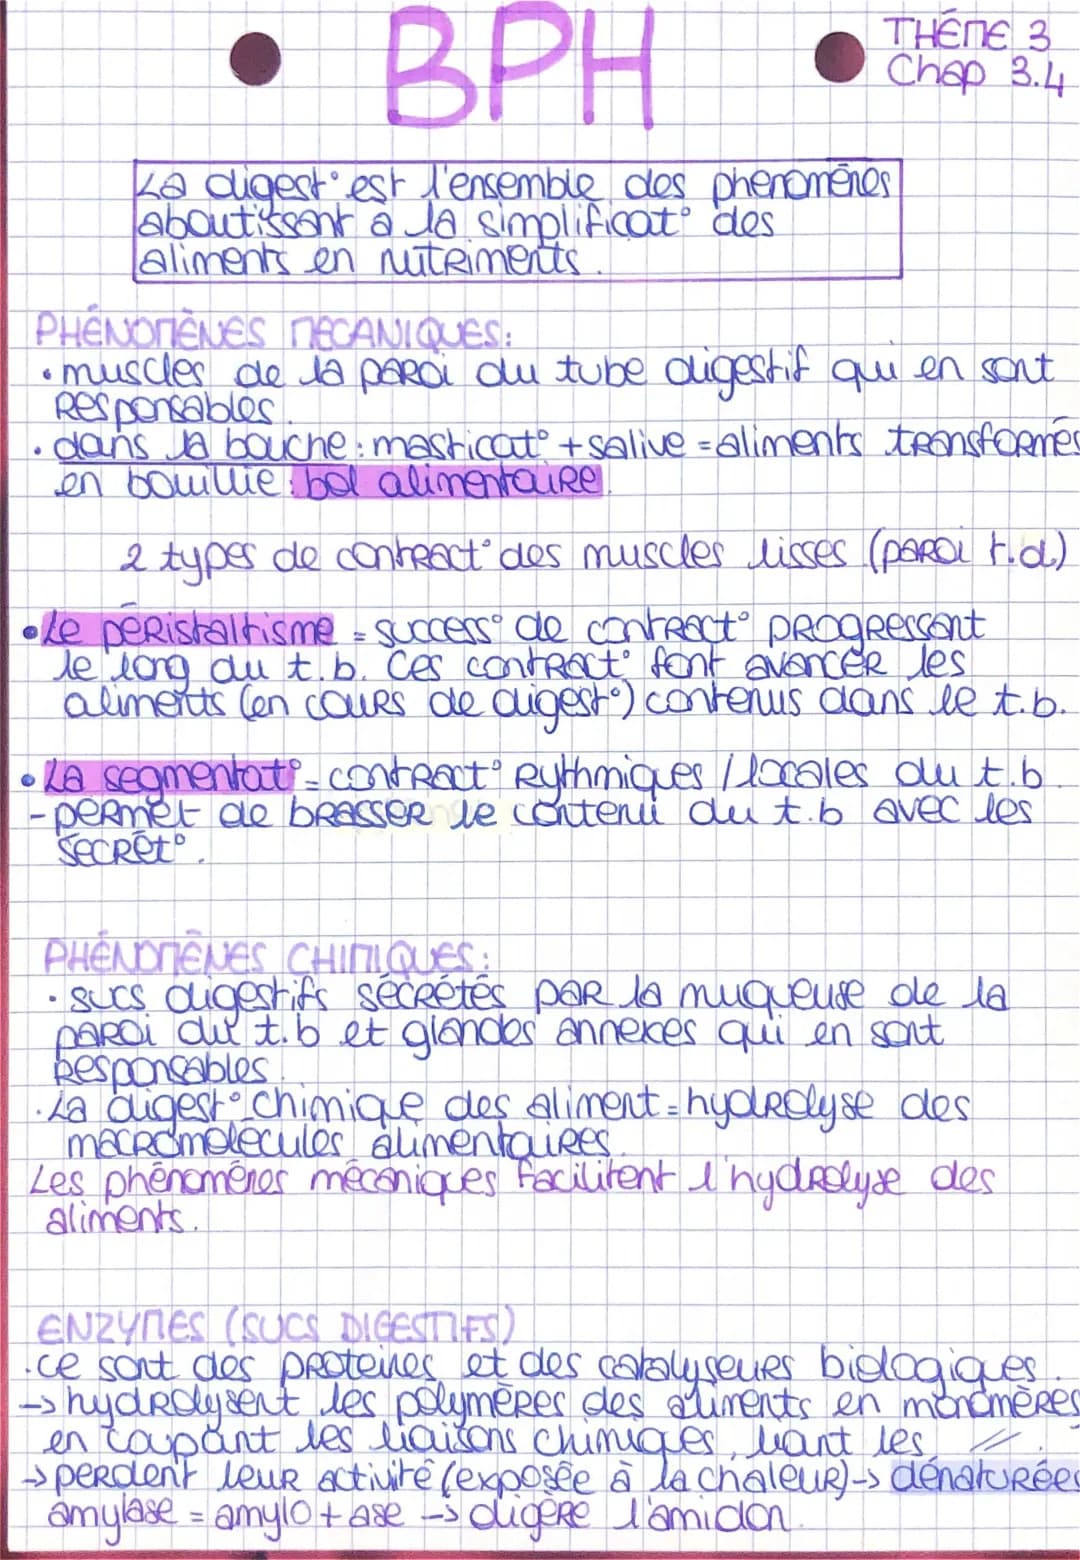 BPH
THÉME 3
Chap 3.4
La digest° est l'ensemble des phenoménes
aboutissant a la simplificat° des
aliments en nutriments.
PHÉNOMÈNES MECANIQUES:
• muscles de la paroi du tube digestif qui en sont
responsables.
• dans la bouche: masticat° + salive = aliments transformés
en bouillie: bol alimentaire.
2 types de contract° des muscles lisses (paroi t.d.)
• Le péristaltisme = success° de contract° progressant
le long du t.b. Ces contract° font avancer les
aliments (en cours de digest°) contenus dans le t.b.
• La segmentat° = contract° rythmiques / locales du t.b
- permet de brasser le contenu du t.b avec les
secrét°.
PHÉNOMÈNES CHIMIQUES:
• sucs digestifs sécrétés par la muqueuse de la
paroi du t.b et glandes annexes qui en sont
responsables.
• La digest° chimique des aliment = hydrolyse des
macromolécules alimentaires.
Les phénoménes mécaniques facilitent l'hydrolyse des
aliments.
ENZYMES (SUCS DIGESTIFS)
• ce sont des proteines et des catalyseurs biologiques.
-> hydrolysent les polymères des aliments en monomères
en coupant les liaisons chimiques liant les //.
-> perdent leur activité (exposée à la chaleur) -> dénaturées
amylase = amylo + ase -> digère l'amidon.